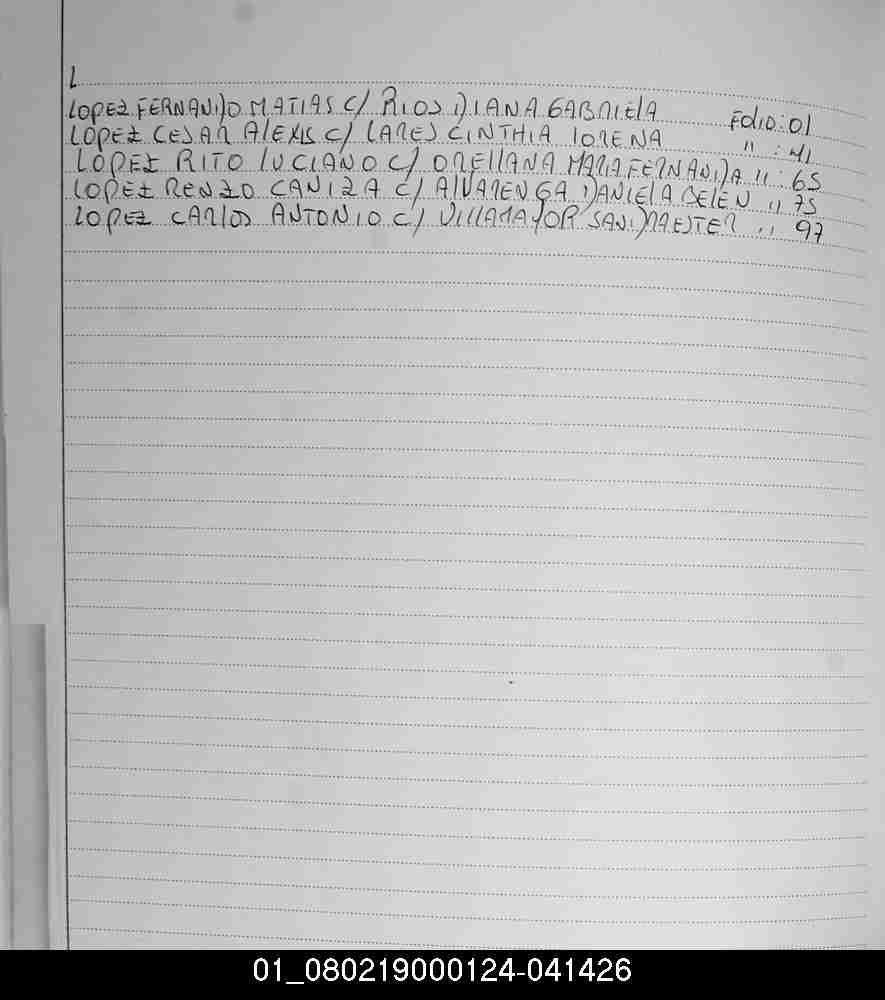 L
LOPEZ FERNANDO MATIAS C/ RIOS DIANA GABRIELA FOLIO: 01
LOPEZ CESAR ALEXIS C/ LARES CINTHIA LORENA " : 41
LOPEZ RITO LUCIANO C/ ORELLANA MARIA FERNANDA " : 65
LOPEZ RENZO CANIZA C/ ALVARENGA DANIELA BELEN " 75
LOPEZ CARLOS ANTONIO C/ VILLAMAYOR SANDRA ESTER " 97
01_080219000124-041426